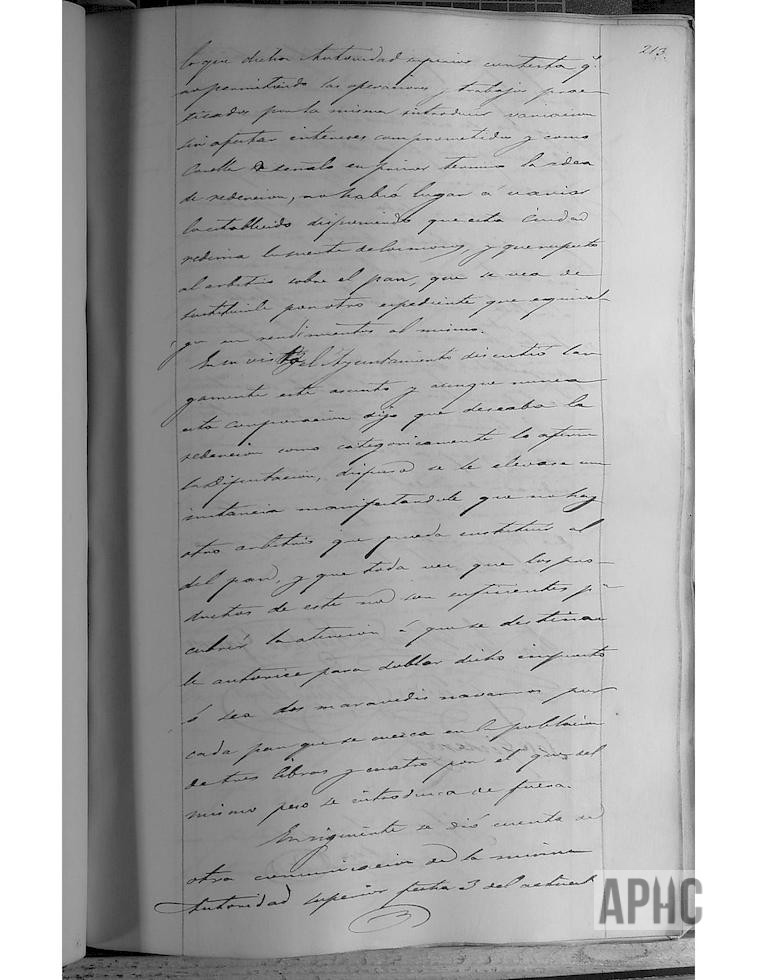 213.
lo que dicha Autoridad superior contesta q.e
no permitiendo las operaciones y trabajos prac-
ticados por la misma introducir variacion
sin afectar intereses comprometidos y como
aquella señaló en primer termino la idea
de redencion, no habrá lugar á variar
lo establecido disponiendo que esta Ciudad
redima la suerte de los mozos, y que respecto
al arbitrio sobre el pan, que se vea de
sustituirle por otro espediente que equival-
ga en rendimientos al mismo.
En su vista el Ayuntamiento discutió lar-
gamente este asunto y aunque nunca
esta corporacion dijo que deseaba la
redencion como categoricamente lo afirma
la Diputacion, dispuso se le elevase una
instancia manifestandole que no hay
otro arbitrio que pueda sustituir al
del pan, y que toda vez que los pro-
ductos de este no son suficientes p.a
cubrir la atencion á que se destinan
le autorice para doblar dicho impuesto
ó sea dos maravedis navarros por
cada pan que se cueza en la poblacion
de tres libras y cuatro por el que del
mismo peso se introduzca de fuera.
Enseguida se dió cuenta de
otra comunicacion de la misma
Autoridad superior fecha 3 del actual
APHC